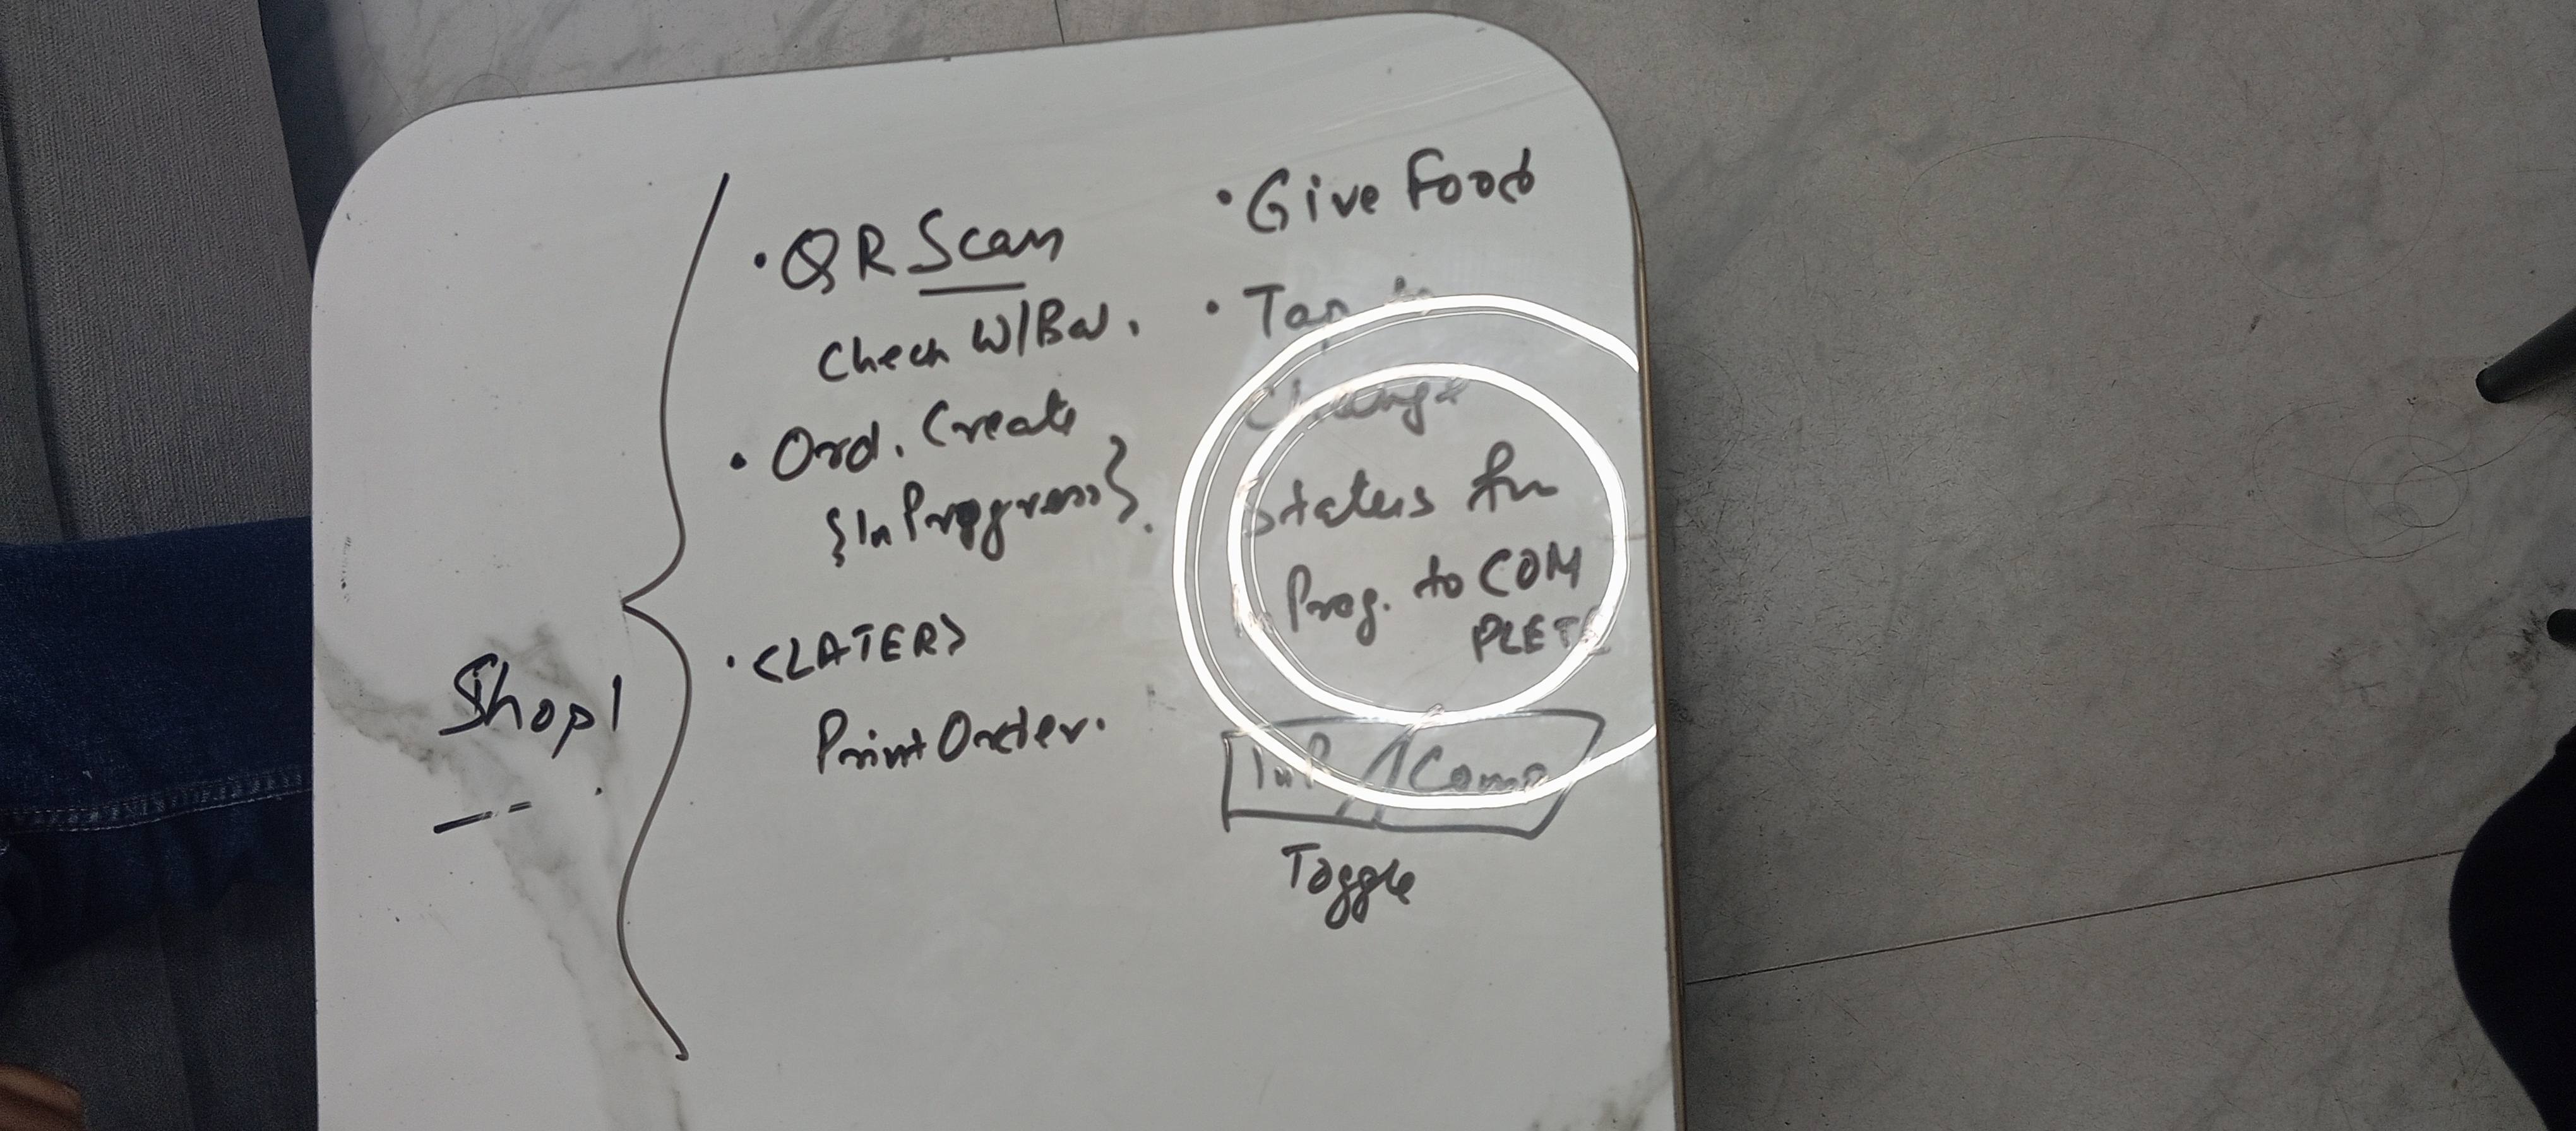 Shop1
• QR Scan
Check W/Bal.
• Ord. Create
{In Progress}.
• <LATER>
Print Order.
• Give Food
• Tap to
Change
Status fm
Prog. to COM
PLETE
InP / Comp
Toggle